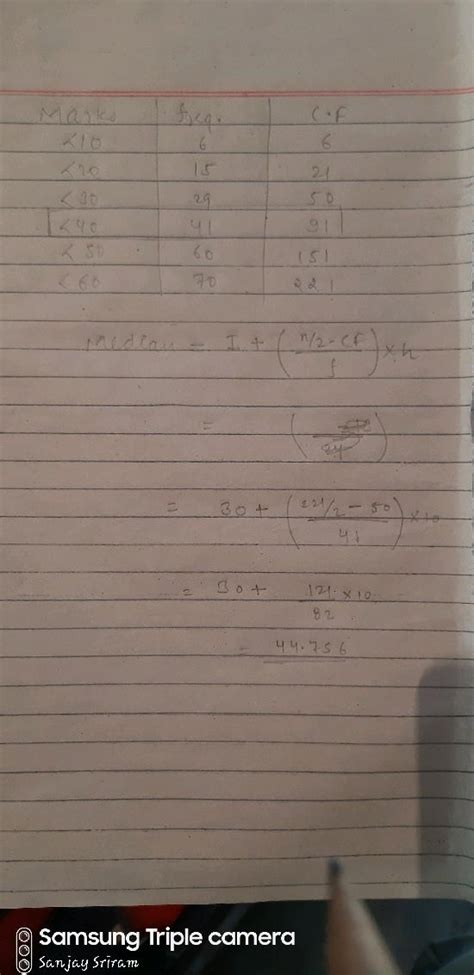 Marks freq. C.F
<10 6 6
<20 15 21
<30 29 50
<40 41 91
<50 60 151
<60 70 221
Median = I + (n/2 - CF / f) × h
= ( )
= 30 + (221/2 - 50 / 41) × 10
= 30 + 121 × 10 / 82
= 44.756
Samsung Triple camera
Sanjay Sriram